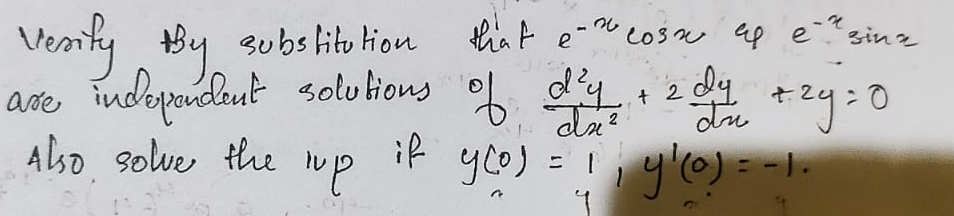 Verify By substitution that e⁻ˣ cosx & e⁻ˣ sinx
are independent solutions of d²y/dx² + 2 dy/dx + 2y = 0
Also solve the ivp if y(0) = 1, y'(0) = -1.